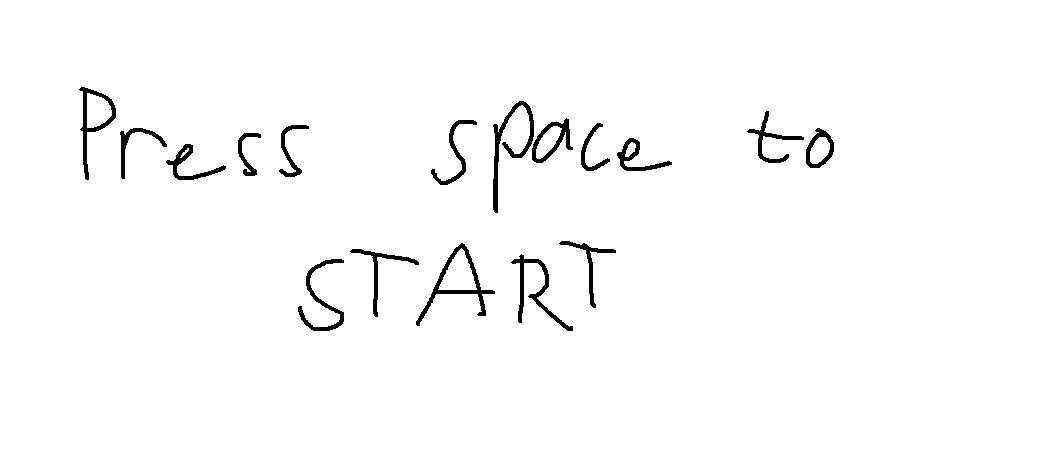 Press space to
START